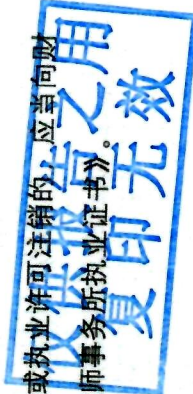 或执业许可注销的，应当向财
师事务所执业证书》。
报告之用
复印无效